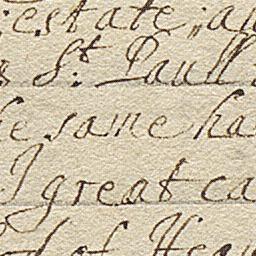 estate, an
St. Paull
he same ha
I great ca
of Hea